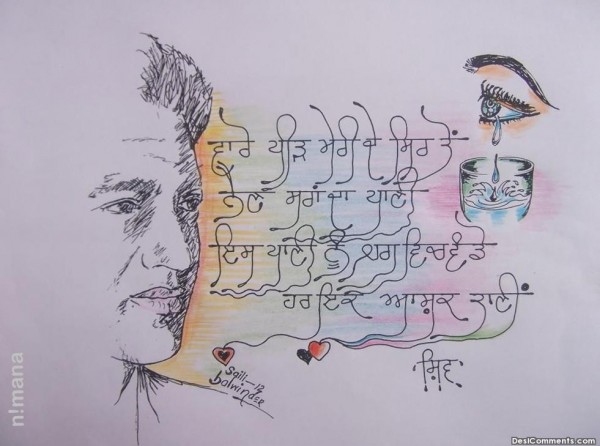 ਵਾਰੇ ਪੀੜ ਮੇਰੀ ਦੇ ਸਿਰ ਤੋਂ
ਨੈਣ ਸਰਾਂ ਦਾ ਪਾਣੀ
ਇਸ ਪਾਣੀ ਨੂੰ ਜਗ ਵਿਚ ਵੰਡੇ
ਹਰ ਇਕ ਆਸ਼ਕ ਰਾਣੀ
ਸ਼ਿਵ
balvinder
n!mana
DesiComments.com